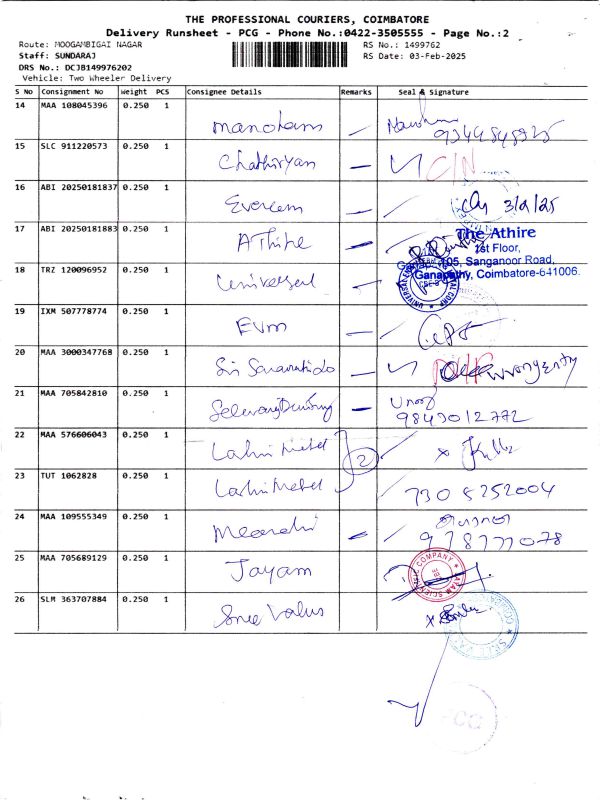 THE PROFESSIONAL COURIERS, COIMBATORE
Delivery Runsheet - PCG - Phone No.:0422-3505555 - Page No.:2
Route: MOOGAMBIGAI NAGAR
RS No.: 1499762
Staff: SUNDARAJ
RS Date: 03-Feb-2025
DRS No.: DCJB149976202
Vehicle: Two Wheeler Delivery
S No Consignment No Weight PCS Consignee Details Remarks Seal & signature
14 MAA 108045396 0.250 1
Manoharn
15 SLC 911220573 0.250 1
Chathiryan
16 ABI 20250181837 0.250 1
Evercem 3/2/25
17 ABI 20250181883 0.250 1
AThire
The Athire
1st Floor,
105, Sanganoor Road,
Ganapathy, Coimbatore-641006.
18 TRZ 120096952 0.250 1
Universal
19 IXM 507778774 0.250 1
EVM
20 MAA 3000347768 0.250 1
Sri
21 MAA 705842810 0.250 1
22 MAA 576606043 0.250 1
Lahri Metel 2
23 TUT 1062828 0.250 1
Lashri Metel 7305252004
24 MAA 109555349 0.250 1
25 MAA 705689129 0.250 1
Jayam
JAYAM SCIENTIFIC COMPANY
26 SLM 363707884 0.250 1
Sree Valus